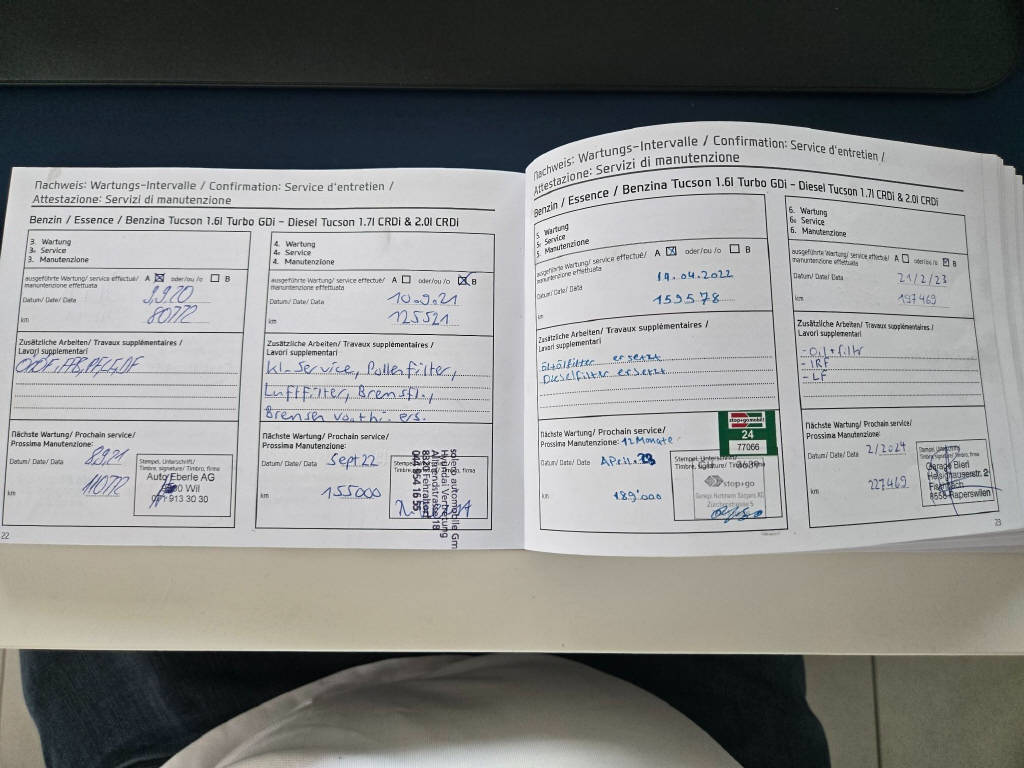 Nachweis: Wartungs-Intervalle / Confirmation: Service d'entretien /
Attestazione: Servizi di manutenzione
Benzin / Essence / Benzina Tucson 1.6l Turbo GDi – Diesel Tucson 1.7l CRDi & 2.0l CRDi
3. Wartung
3e Service
3. Manutenzione
ausgeführte Wartung/ service effectué/ A ☒ oder/ou /o ☐ B
manutenzione effettuata
Datum/ Date/ Data 8.9.20
km 80772
Zusätzliche Arbeiten/ Travaux supplémentaires /
Lavori supplementari
Nächste Wartung/ Prochain service/
Prossima Manutenzione:
Datum/ Date/ Data 8.9.21
km 110772
Stempel, Unterschrift/
Timbre, signature/ Timbro, firma
Auto Eberle AG
Wil
913 30 30
4. Wartung
4e Service
4. Manutenzione
ausgeführte Wartung/ service effectué/ A ☐ oder/ou /o ☒ B
manutenzione effettuata
Datum/ Date/ Data 10.9.21
km 125521
Zusätzliche Arbeiten/ Travaux supplémentaires /
Lavori supplementari
Kl-Service, Pollenfilter,
Luftfilter, Bremsfl.,
Bremsen vo. + hi. ers.
Nächste Wartung/ Prochain service/
Prossima Manutenzione:
Datum/ Date/ Data Sept 22
km 155000
automobile Gm
Hyundai Vertretung
8320 Fehraltorf
044 954 16 55
22
Nachweis: Wartungs-Intervalle / Confirmation: Service d'entretien /
Attestazione: Servizi di manutenzione
Benzin / Essence / Benzina Tucson 1.6l Turbo GDi – Diesel Tucson 1.7l CRDi & 2.0l CRDi
5. Wartung
5e Service
5. Manutenzione
ausgeführte Wartung/ service effectué/ A ☒ oder/ou /o ☐ B
manutenzione effettuata
Datum/ Date/ Data 14.04.2022
km 159578
Zusätzliche Arbeiten/ Travaux supplémentaires /
Lavori supplementari
Öl+Ölfilter ersetzt
Dieselfilter ersetzt
Nächste Wartung/ Prochain service/
Prossima Manutenzione: 12 Monate
Datum/ Date/ Data April 23
km 189'000
stop+go mobil
24
77066
Stempel, Unterschrift/
Timbre, signature/ Timbro, firma
stop+go
6. Wartung
6e Service
6. Manutenzione
ausgeführte Wartung/ service effectué/ A ☐ oder/ou /o ☒ B
manutenzione effettuata
Datum/ Date/ Data 21/2/23
km 197469
Zusätzliche Arbeiten/ Travaux supplémentaires /
Lavori supplementari
- Oil + Filtr
- IRF
- LF
Nächste Wartung/ Prochain service/
Prossima Manutenzione:
Datum/ Date/ Data 2/2024
km 227469
Stempel, Unterschrift/
Timbre, signature/ Timbro, firma
Garage Bieri
8558 Raperswilen
23